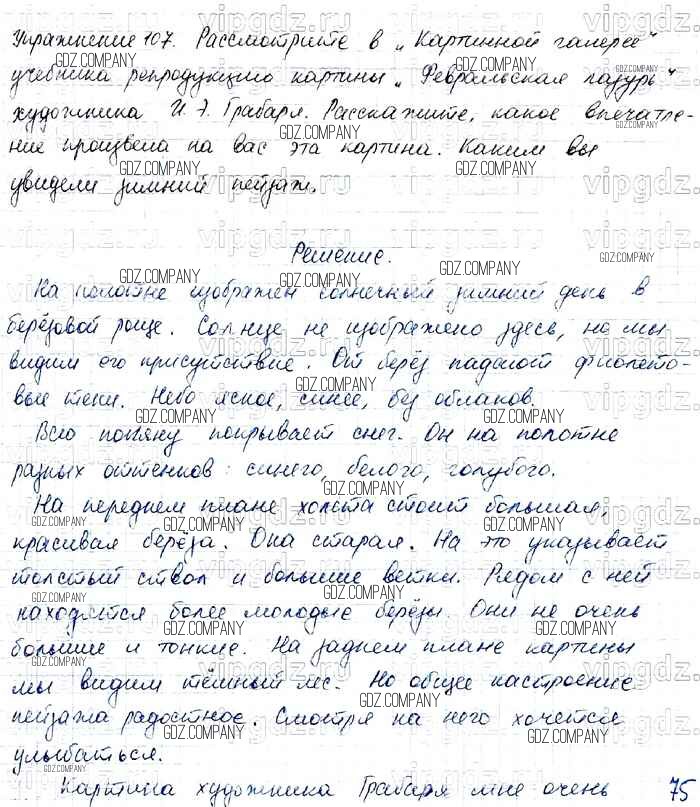 Упражнение 107. Рассмотрите в „Картинной галерее"
учебника репродукцию картины „Февральская лазурь"
художника И. Э. Грабаря. Расскажите, какое впечатле-
ние произвела на вас эта картина. Каким вы
увидели зимний пейзаж.
Решение.
На полотне изображён солнечный зимний день в
берёзовой роще. Солнце не изображено здесь, но мы
видим его присутствие. От берёз падают фиолето-
вые тени. Небо ясное, синее, без облаков.
Всю поляну покрывает снег. Он на полотне
разных оттенков: синего, белого, голубого.
На переднем плане холста стоит большая,
красивая берёза. Она старая. На это указывает
толстый ствол и большие ветки. Рядом с ней
находятся более молодые берёзы. Они не очень
большие и тонкие. На заднем плане картины
мы видим тёмный лес. Но общее настроение
пейзажа радостное. Смотря на него хочется
улыбаться.
Картина художника Грабаря мне очень 75
vipgdz.ru
GDZ.COMPANY